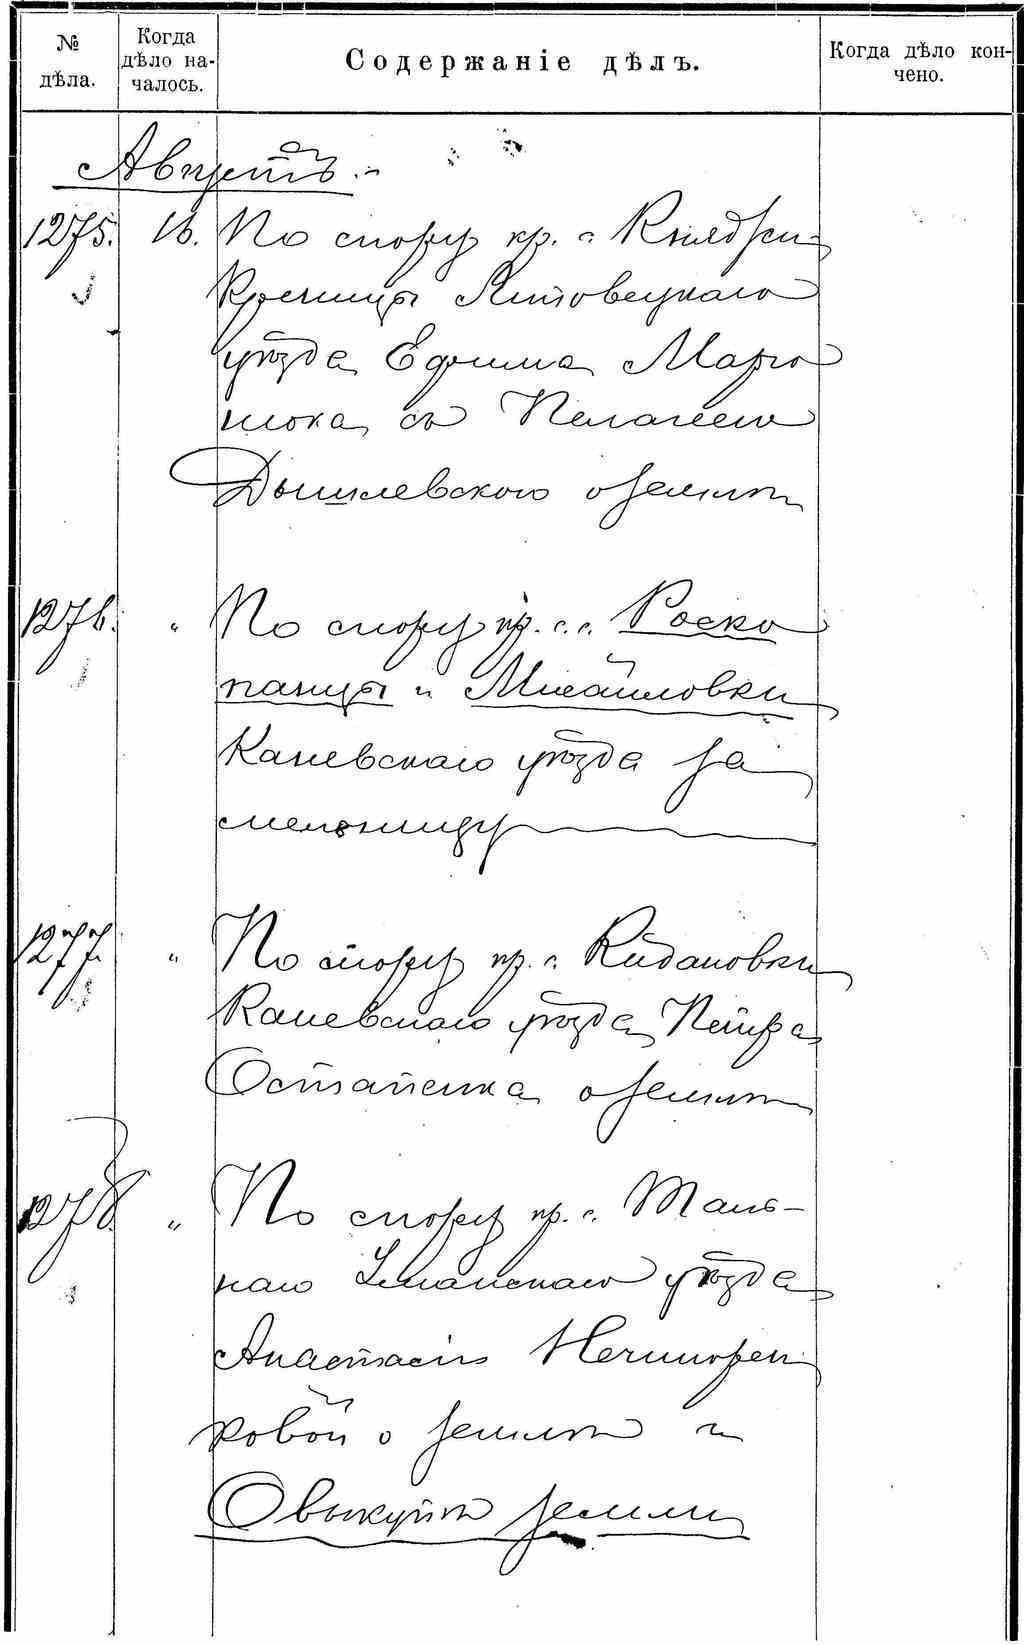 № дѣла.
Когда дѣло на-чалось.
Содержаніе дѣлъ.
Когда дѣло кон-чено.
Августъ.
1275. 16. По спору кр. с. Княджи-
Креницы Липовецкаго
уѣзда Ефима Марто
нюка съ Пелагеею
Дышлевского о землѣ
1276. " По спору кр. с.с. Роско
панцы и Михайловки
Каневскаго уѣзда за
мельницу
1277. " По спору кр. с. Кидановки
Каневскаго уѣзда Петра
Остапенка о землѣ
1278. " По спору кр. с. Таль-
наго Уманскаго уѣзда
Анастасіи Нечипорен
ковой о землѣ и
О выкупѣ земли